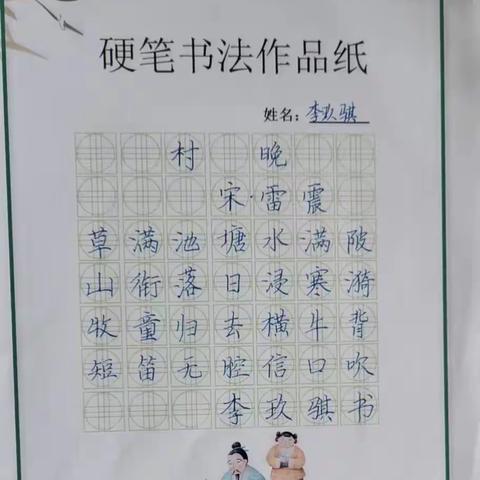 硬笔书法作品纸
姓名：李玖骐
村晚
宋·雷震
草满池塘水满陂
山衔落日浸寒漪
牧童归去横牛背
短笛无腔信口吹
李玖骐书